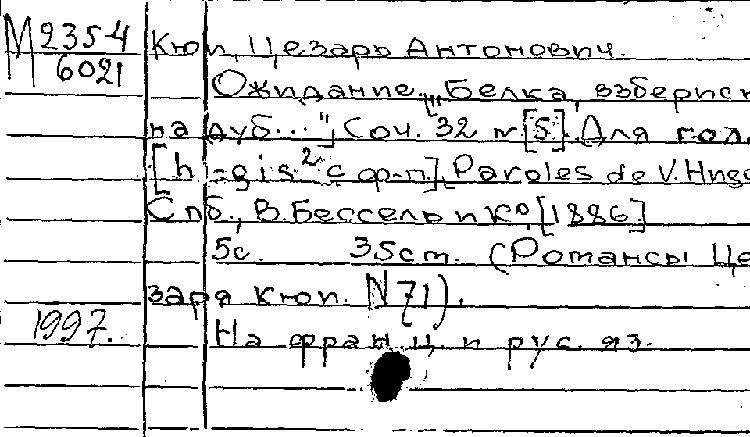 М 2354
6021
Кюи, Цезарь Антонович.
Ожидание. „Белка, взберись
на дуб...", Соч. 32 № [5]. Для гол.
[h - gis² с ф-п.]. Paroles de V. Hugo
Спб., В. Бессель и К⁰, [1886]
5с. 35cm. (Романсы Це
заря Кюи. N 71).
1997.
На франц. и рус. яз.